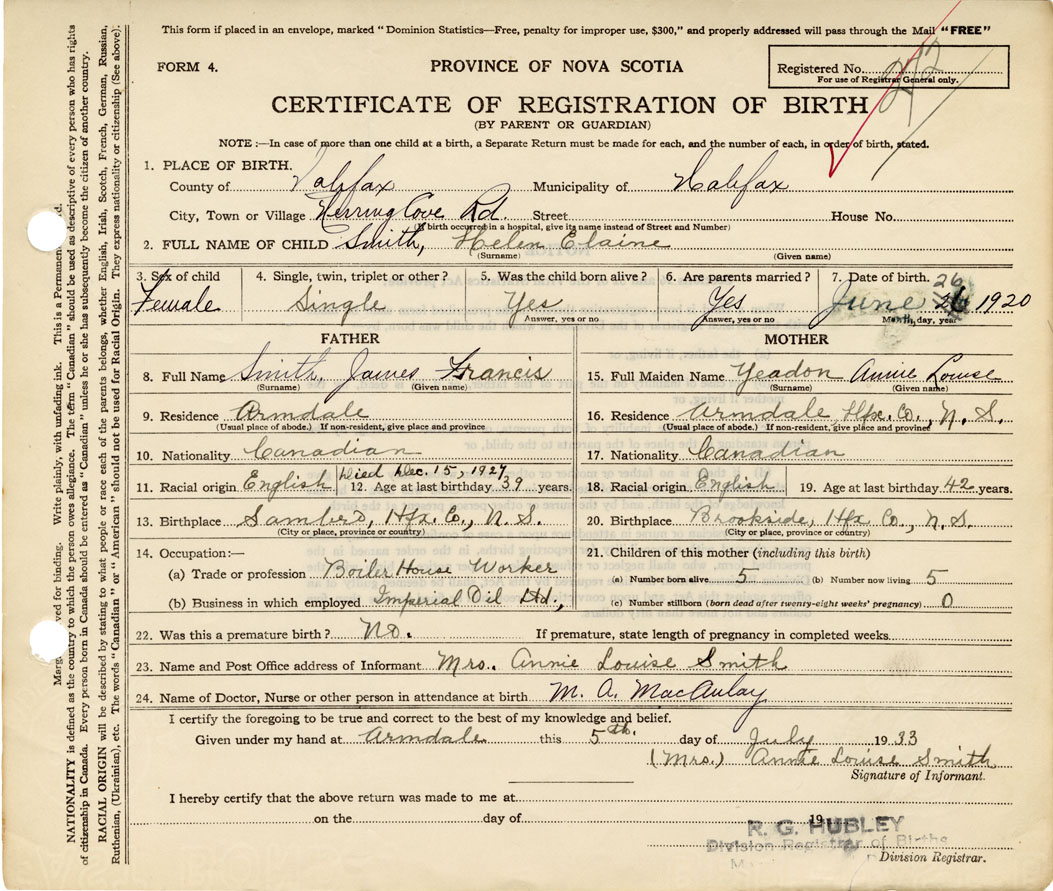 This form if placed in an envelope, marked "Dominion Statistics—Free, penalty for improper use, $300," and properly addressed will pass through the Mail "FREE"
FORM 4.
PROVINCE OF NOVA SCOTIA
Registered No.
For use of Registrar General only.
CERTIFICATE OF REGISTRATION OF BIRTH
(BY PARENT OR GUARDIAN)
NOTE :—In case of more than one child at a birth, a Separate Return must be made for each, and the number of each, in order of birth, stated.
1. PLACE OF BIRTH.
County of Halifax Municipality of Halifax
City, Town or Village Herring Cove Rd. Street House No.
(If birth occurred in a hospital, give its name instead of Street and Number)
2. FULL NAME OF CHILD Smith, Helen Elaine
(Surname) (Given name)
3. Sex of child 4. Single, twin, triplet or other? 5. Was the child born alive? 6. Are parents married? 7. Date of birth. 26
Female Single Yes Yes June 1920
Answer, yes or no Answer, yes or no Month, day, year
FATHER MOTHER
8. Full Name Smith, James Francis 15. Full Maiden Name Yeadon Annie Louise
(Surname) (Given name) (Surname) (Given name)
9. Residence Armdale 16. Residence Armdale Hfx. Co., N. S.
(Usual place of abode.) If non-resident, give place and province (Usual place of abode.) If non-resident, give place and province
10. Nationality Canadian 17. Nationality Canadian
Died Dec. 15, 1927
11. Racial origin English 12. Age at last birthday 39 years. 18. Racial origin English 19. Age at last birthday 42 years.
13. Birthplace Sambro, Hfx. Co., N. S. 20. Birthplace Brookside, Hfx Co., N. S.
(City or place, province or country) (City or place, province or country)
14. Occupation:— 21. Children of this mother (including this birth)
(a) Trade or profession Boiler House Worker (a) Number born alive 5 (b) Number now living 5
(b) Business in which employed Imperial Oil Ltd., (c) Number stillborn (born dead after twenty-eight weeks' pregnancy) 0
22. Was this a premature birth? No. If premature, state length of pregnancy in completed weeks
23. Name and Post Office address of Informant Mrs. Annie Louise Smith
24. Name of Doctor, Nurse or other person in attendance at birth M. A. MacAulay
I certify the foregoing to be true and correct to the best of my knowledge and belief.
Given under my hand at Armdale this 5th. day of July 1933
(Mrs.) Annie Louise Smith
Signature of Informant.
I hereby certify that the above return was made to me at
on the day of 19
R. G. HUBLEY
Division Registrar of Births
Division Registrar.
for binding. Write plainly, with unfading ink. This is a Permanent
NATIONALITY is defined as the country to which the person owes allegiance. The term "Canadian" should be used as descriptive of every person who has rights
of citizenship in Canada. Every person born in Canada should be entered as "Canadian" unless he or she has subsequently become the citizen of another country.
RACIAL ORIGIN will be described by stating to what people or race each of the parents belongs, whether English, Irish, Scotch, French, German, Russian,
Ruthenian, (Ukrainian), etc. The words "Canadian" or "American" should not be used for Racial Origin. They express nationality or citizenship (See above).